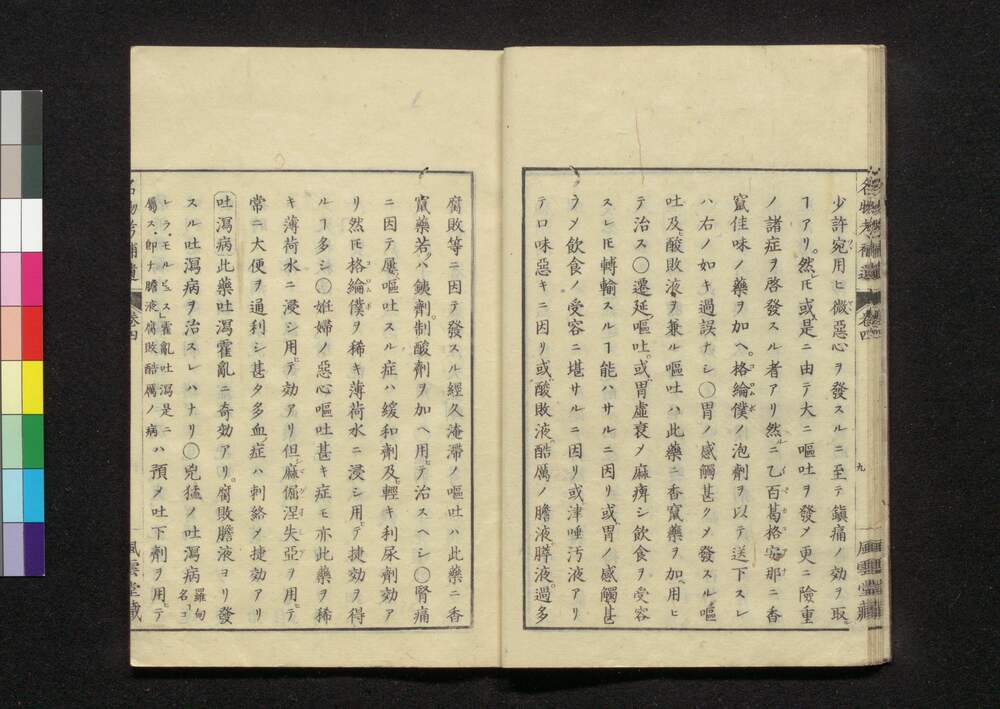 少許宛用ヒ微惡心ヲ發スルニ至テ鎭痛ノ効ヲ取
ヿアリ然𪜈或是ニ由テ大ニ嘔吐ヲ發メ更ニ險重
ノ諸症ヲ啓發スル者アリ然ルニ乙百葛格安那ニ香
竄佳味ノ藥ヲ加ヘ格綸僕ノ泡劑ヲ以テ送下スレ
ハ右ノ如キ過誤ナシ〇胃ノ感觸甚クメ發スル嘔
吐及ヒ酸敗液ヲ兼ル嘔吐ハ此藥ニ香竄藥ヲ加用ヒ
テ治ス〇遷延ノ嘔吐或ハ胃虛衰メ麻痺シ飲食ヲ受容
スレ𪜈轉輸スルヿ能ハサルニ因リ或ハ胃ノ感觸甚
クメ飲食ノ受容ニ堪サルニ因リ或ハ津唾汚液アリ
テ口味惡キニ因リ或ハ酸敗液酷厲ノ膽液膵液過多
腐敗等ニ因テ發スル經久淹滯ノ嘔吐ハ此藥ニ香
竄藥若クハ鐵劑制酸劑ヲ加ヘ用ヒテ治スヘシ〇腎痛
ニ因テ屢嘔吐スル症ハ緩和劑及ヒ輕キ利尿劑効ア
リ然𪜈格綸僕ヲ稀キ薄荷水ニ浸シ用テ捷効ヲ得
ルヿ多シ〇妊婦ノ惡心嘔吐甚キ症モ亦此藥ヲ稀
キ薄荷水ニ浸シ用テ効アリ但麻倔涅失亞ヲ用テ
常ニ大便ヲ通利シ甚タ多血症ハ刺絡メ捷効アリ
吐瀉病 此藥吐瀉霍亂ニ奇効アリ腐敗膽液ヨリ發
スル吐瀉病ヲ治スレハナリ〇兇猛ノ吐瀉病 羅甸名コ
レラモルビュス霍亂吐瀉是ニ屬ス即ナ膽液腐敗酷厲ノ病 ハ預メ吐下劑ヲ用テ
名物考補遺 卷四
九
風雲堂藏
名物考補遺 卷四
風雲堂藏